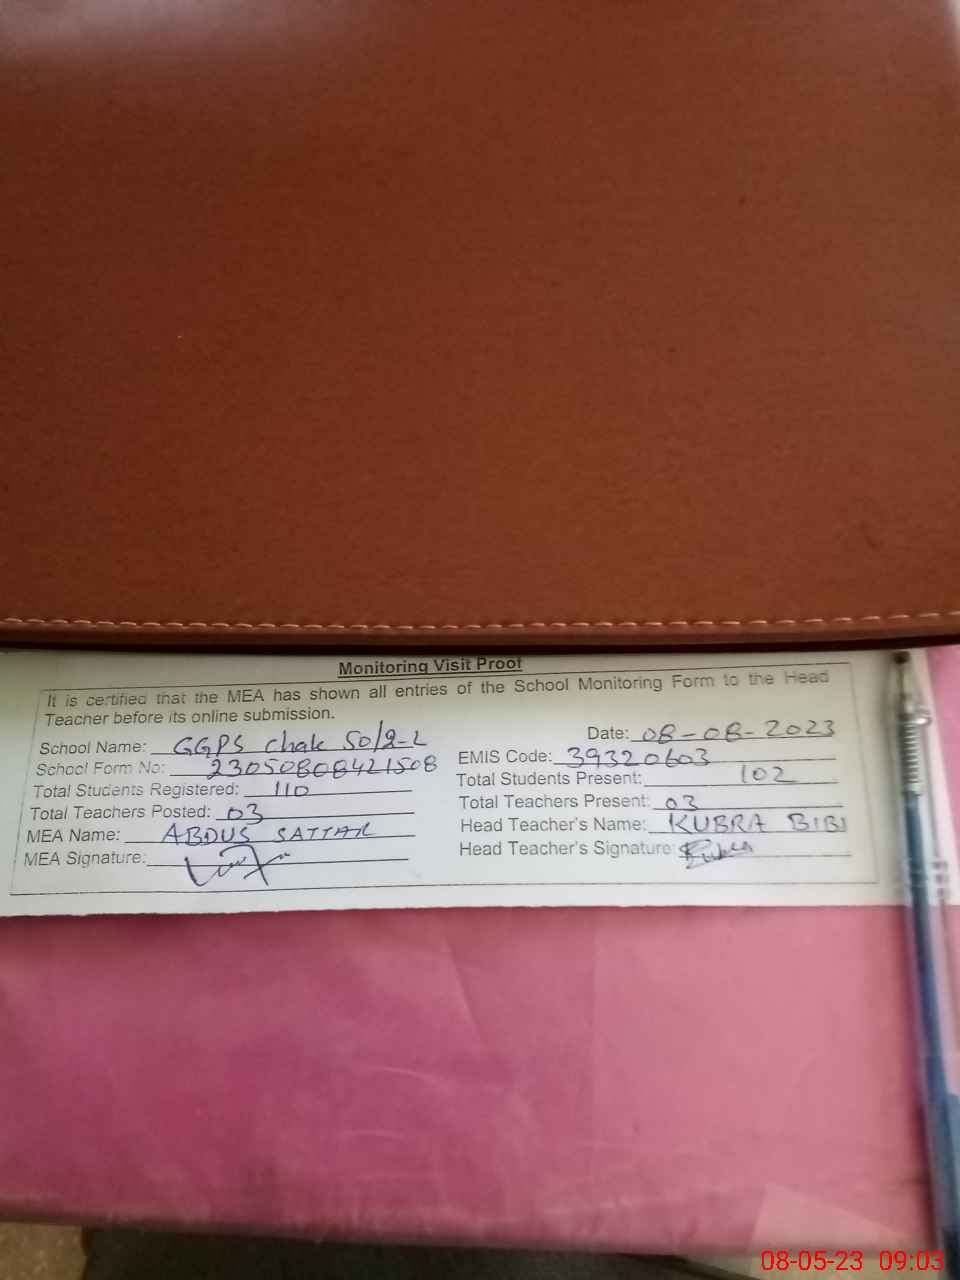 Monitoring Visit Proof
It is certified that the MEA has shown all entries of the School Monitoring Form to the Head
Teacher before its online submission.
Date: 08-08-2023
School Name: GGPS chak 50/2-L
EMIS Code: 39320603
School Form No: 23050808421508
Total Students Present: 102
Total Students Registered: 110
Total Teachers Present: 03
Total Teachers Posted: 03
Head Teacher's Name: KUBRA BIBI
MEA Name: ABDUS SATTAR
Head Teacher's Signature:
MEA Signature:
08-05-23 09:03